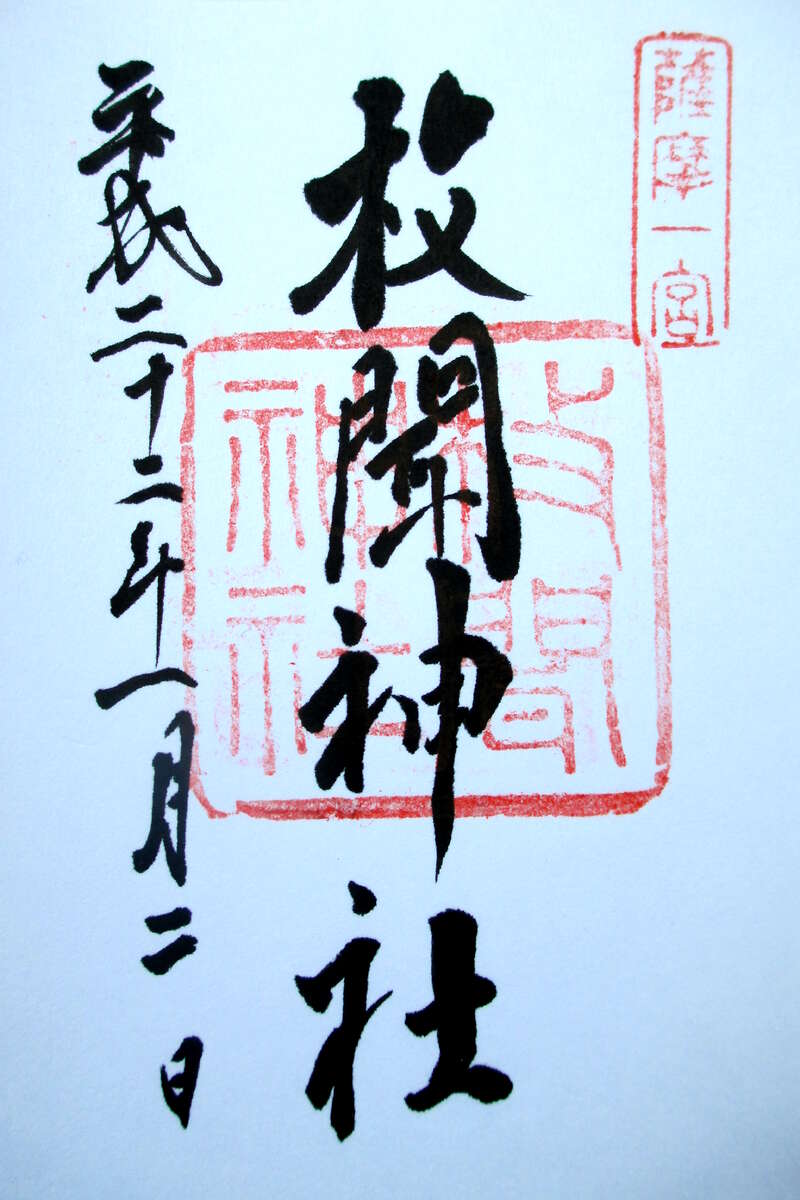 薩摩一宮
枚聞神社
枚聞神社
平成二十二年一月二日